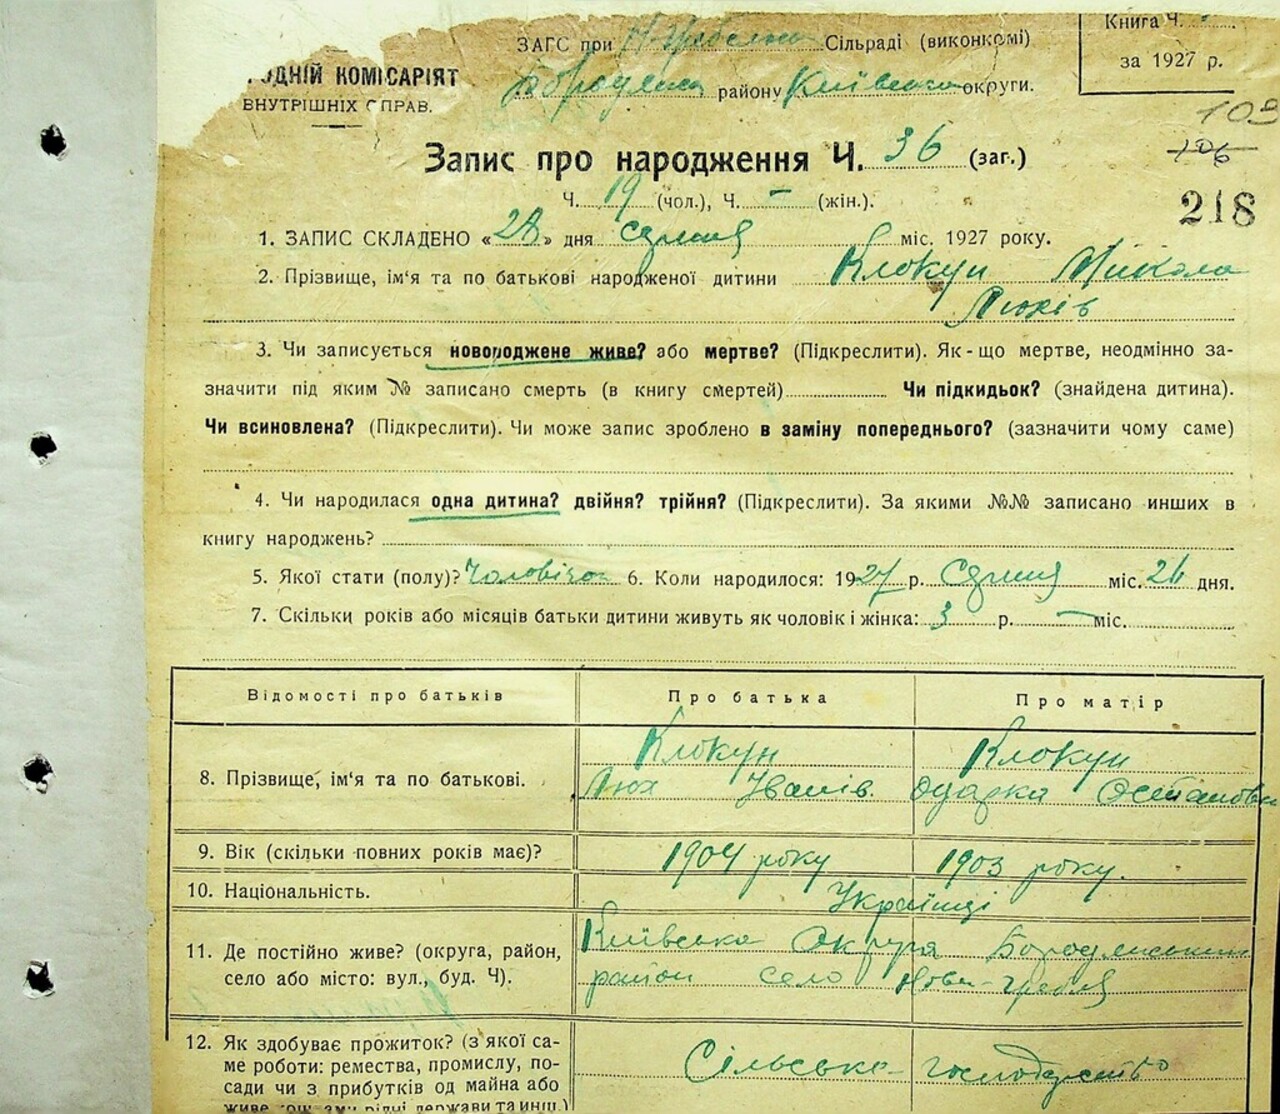 ЗАГС при Н-Гребельс Сільраді (виконкомі)
Книга Ч.
за 1927 р.
ОДНІЙ КОМІСАРІЯТ
ВНУТРІШНІХ СПРАВ.
району Київської округи.
103
106
Запис про народження Ч. 36 (заг.)
Ч. 19 (чол.), Ч. – (жін.).
218
1. ЗАПИС СКЛАДЕНО «28» дня серпня міс. 1927 року.
2. Прізвище, ім'я та по батькові народженої дитини Клокун Микола
3. Чи записується новороджене живе? або мертве? (Підкреслити). Як-що мертве, неодмінно за-
значити під яким № записано смерть (в книгу смертей) Чи підкидьок? (знайдена дитина).
Чи всиновлена? (Підкреслити). Чи може запис зроблено в заміну попереднього? (зазначити чому саме)
4. Чи народилася одна дитина? двійня? трійня? (Підкреслити). За якими №№ записано инших в
книгу народжень?
5. Якої стати (полу)? Чоловічої 6. Коли народилося: 1927 р. серпня міс. 26 дня.
7. Скільки років або місяців батьки дитини живуть як чоловік і жінка: 3 р. – міс.
Відомості про батьків Про батька Про матір
8. Прізвище, ім'я та по батькові.
Клокун Клокун
Іванів Одарка Остаповна
9. Вік (скільки повних років має)? 1904 року 1903 року.
10. Національність. Українці
11. Де постійно живе? (округа, район,
село або місто: вул., буд. Ч).
Київська Округа Бородянський
район село Нова-Гребля
12. Як здобуває прожиток? (з якої са-
ме роботи: ремества, промислу, по-
сади чи з прибутків од майна або
Сільське господарство